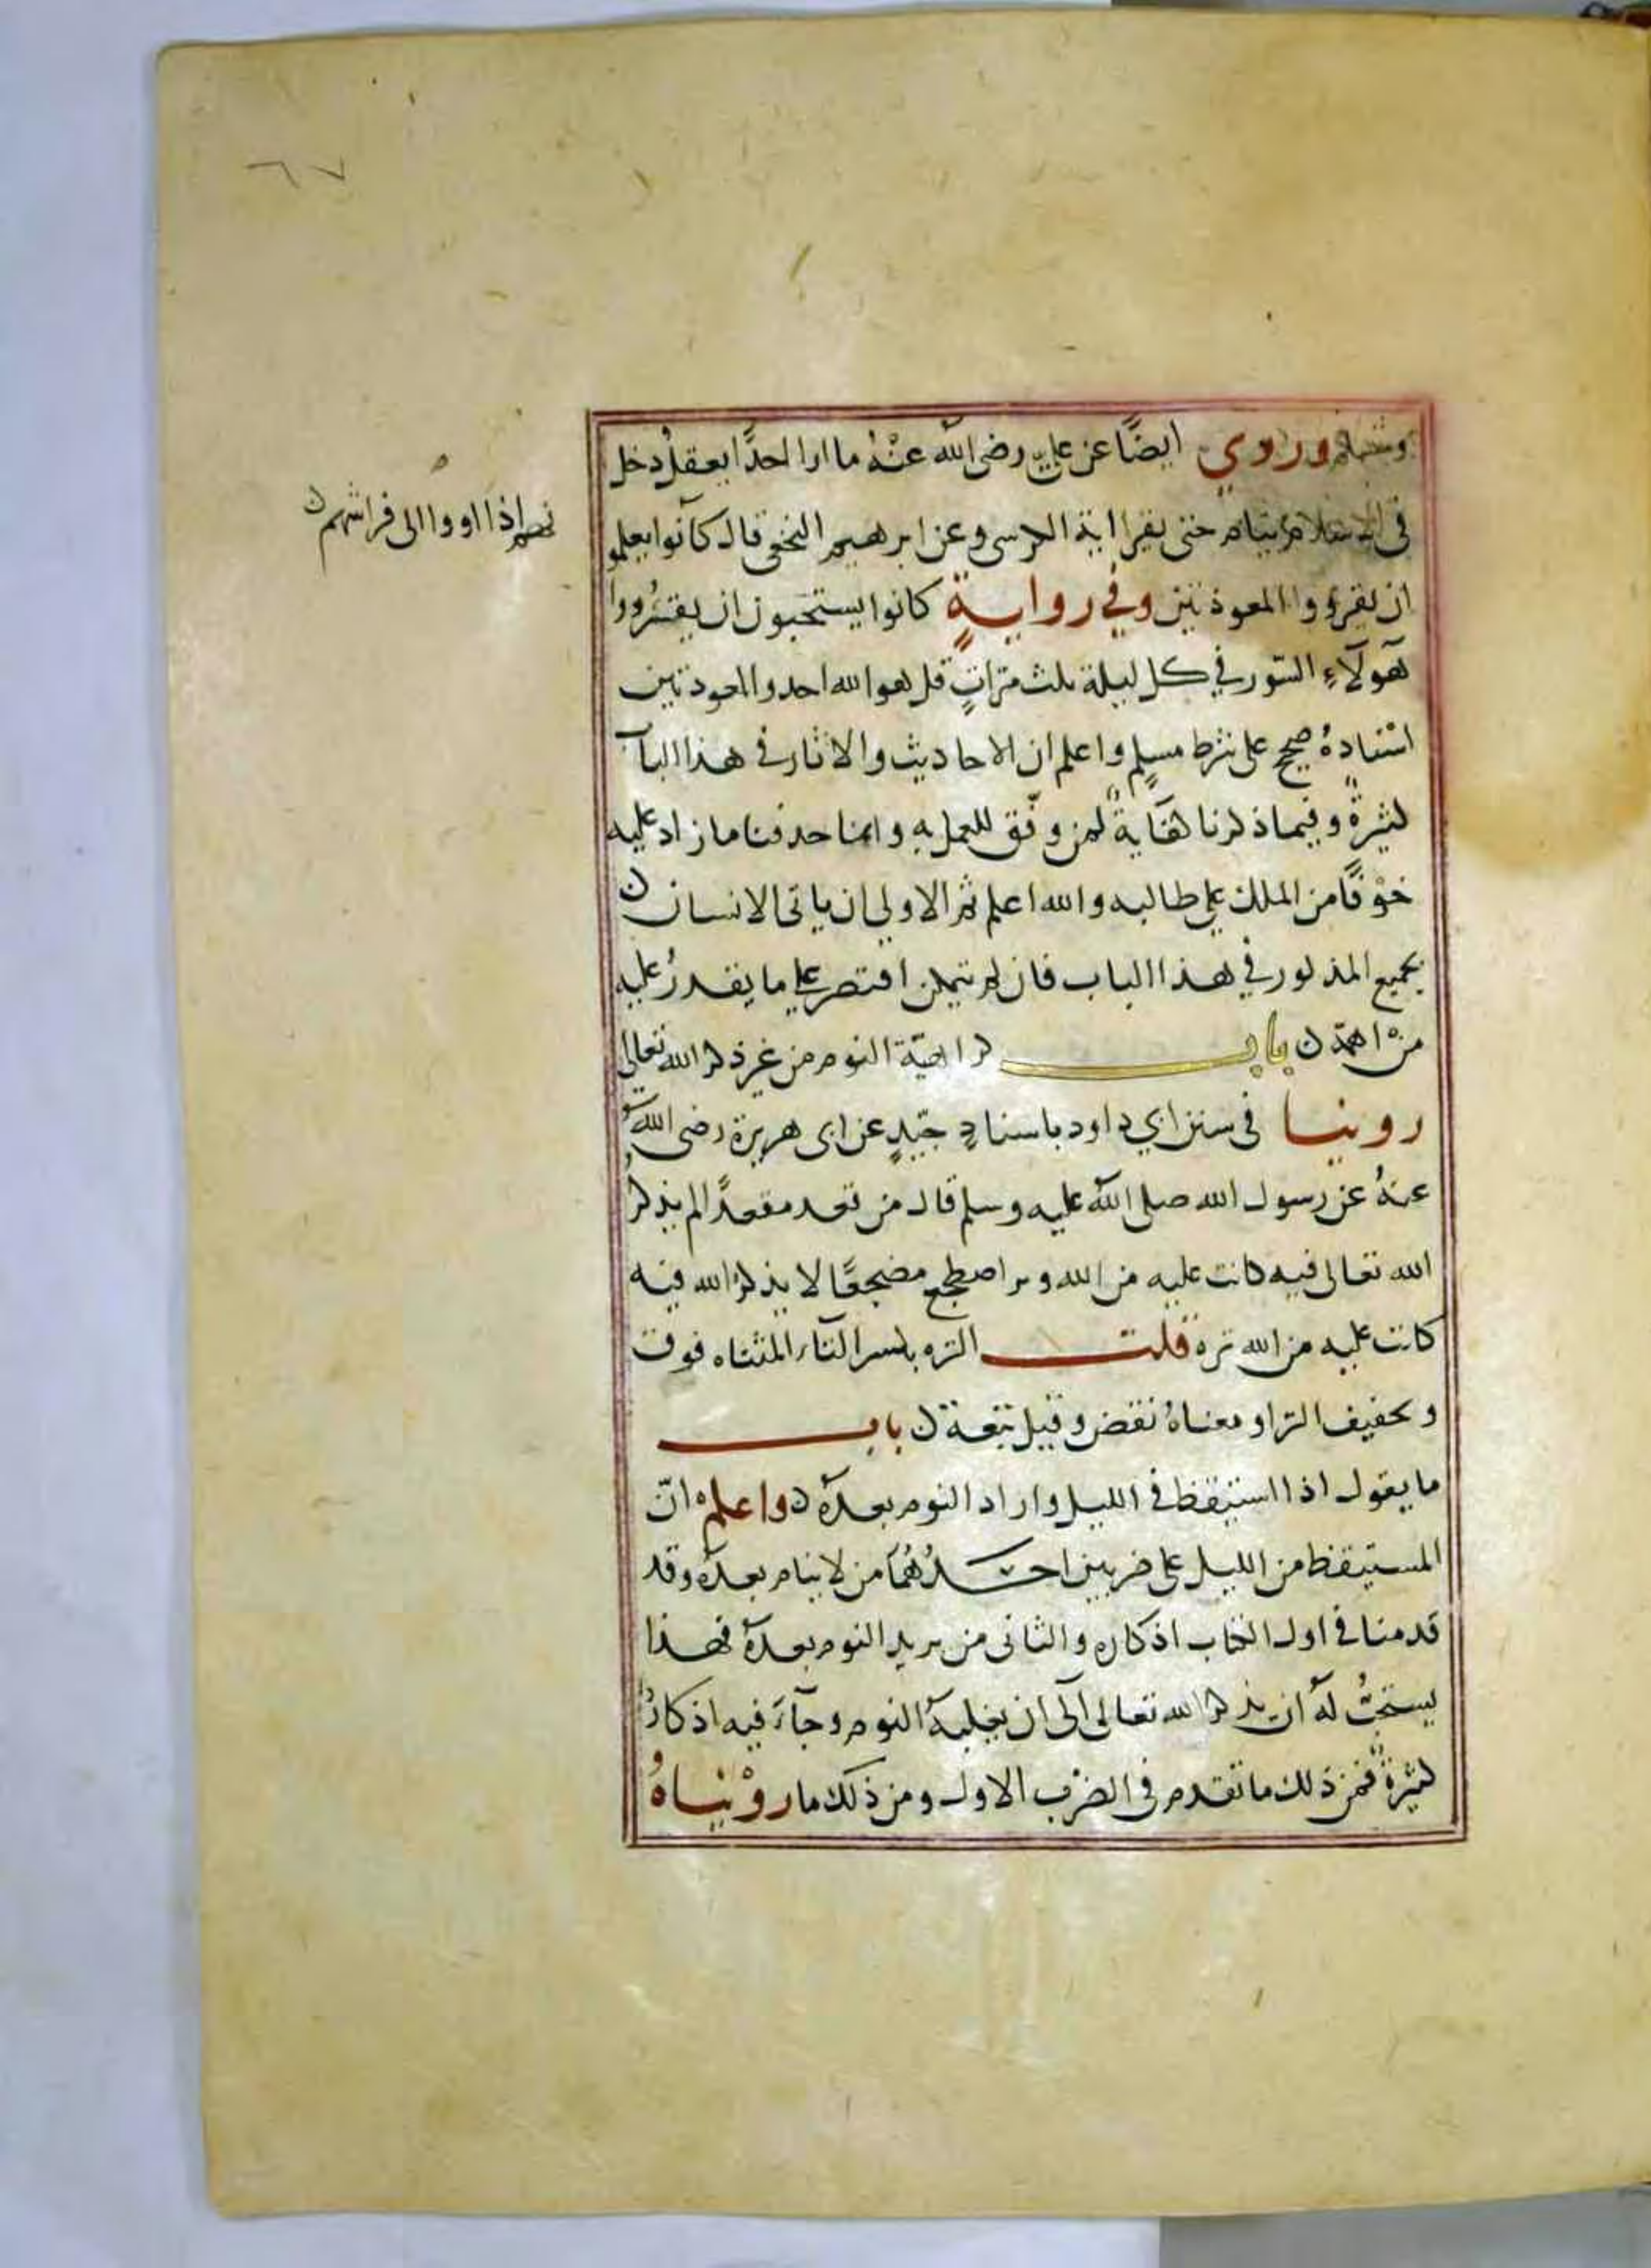 ٦٧
ومسلم وروي ايضًا عن علي رضي الله عنْهُ ما ارا احدًا يعقل دخل
في الاسلام ينام حتى يقرا اية الكرسي وعن ابرهيم النخعي قال كانوا يعلمو
نهم اذا اووا الى فراشهم ن
ان يقرؤوا المعوذتين وفي روايةٍ كانوا يستحبون ان يقرُووا
هَولآءِ السّور في كل ليلة ثلث مرّاتٍ قل هو الله احد والمعوذتين
اسْنادهُ صحيح على شرط مسلمٍ واعلم ان الاحاديث والاثار في هذا الباب
كثيرةٌ وفيما ذكرنا كفايةٌ لمن وفّق للعمل به وانما حذفنا ما زاد عليه
خوْفًا من الملل على طالبه والله اعلم ثم الاولى ان ياتى الانسان
بجميع المذكور في هذا الباب فان لم يتمكن اقتصر على ما يقدرُ عليه
منْ اهمّه ن باب كراهيّة النوم من غير ذكر الله تعالى
روينا في سنن ابي داود باسنادٍ جيّدٍ عن ابى هريرة رضى الله
عنهُ عن رسول الله صلى الله عليه وسلم قال من قعد مقعدًا لم يذكر
الله تعالى فيه كانت عليه من الله ومن اضطجع مضجعًا لا يذكرُ الله فيه
كانت عليه من الله تره قلت التره بكسر التاء المثناه فوق
وتخفيف الرا ومعناهُ نقض وقيل تبعة ن باب
ما يقول اذا استيقظ في الليل واراد النوم بعدهُ ن واعلم انّ
المستيقظ من الليل على ضربين احدُهُما من لا ينام بعده وقد
قدمنا في اول الكتاب اذكاره والثانى من يريد النوم بعدهُ فهذا
يستحبُّ لهُ ان يذكر الله تعالى الى ان يغلبهُ النوم وجآءَ فيه اذكارٌ
كثيرةٌ فمن ذلك ما تقدم في الضرْب الاول ومن ذلك ما روْيناهُ